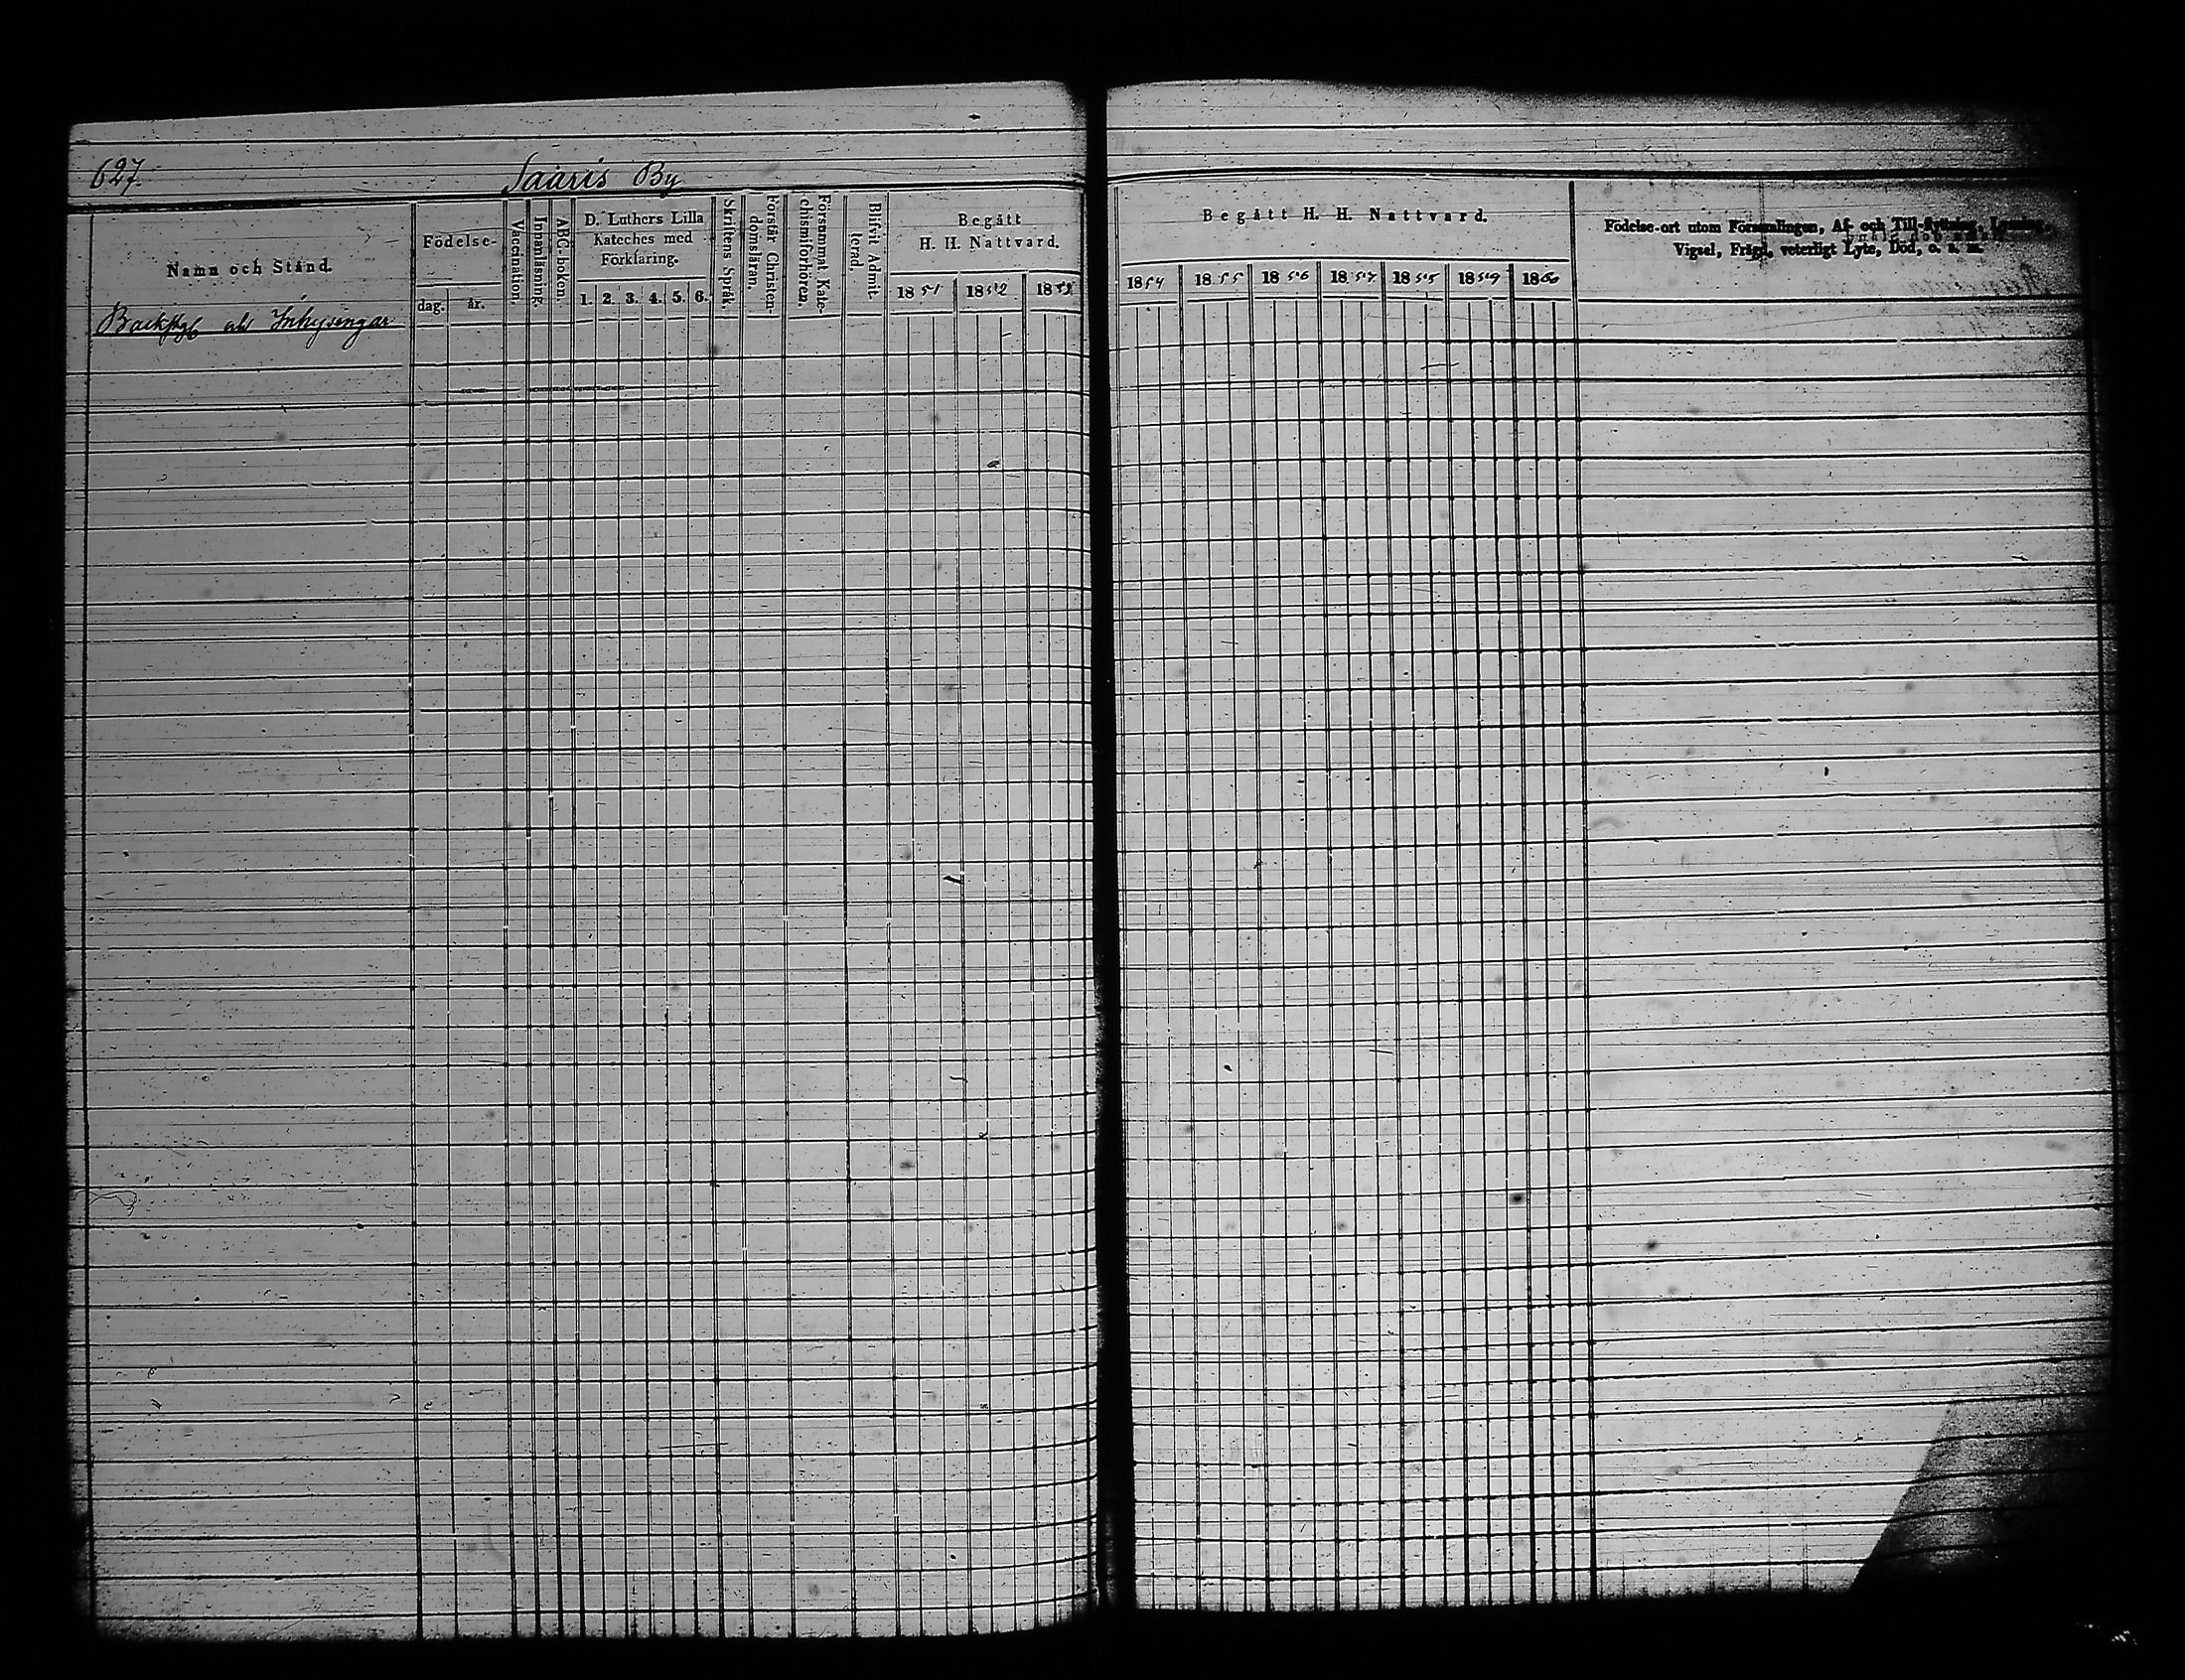 627.
Saaris By
Namn och Stånd.
Födelse-
dag.
år.
Vaccination.
Innanläsning.
ABC-boken.
D. Luthers Lilla
Kateches med
Förklaring.
1. 2. 3. 4. 5. 6.
Skriftens Språk.
Förstår Christen-
domsläran.
Försummat Kate-
chismiförhören.
Blifvit Admit-
terad.
Begått
H. H. Nattvard.
1851 1852 1853
Begått H. H. Nattvard.
1854 1855 1856 1857 1858 1859 1860
Födelse-ort utom Församlingen, Af- och Till-flyttning, Lysning,
Vigsel, Frägd, veterligt Lyte, Död, o. s. m.
Inhysingar